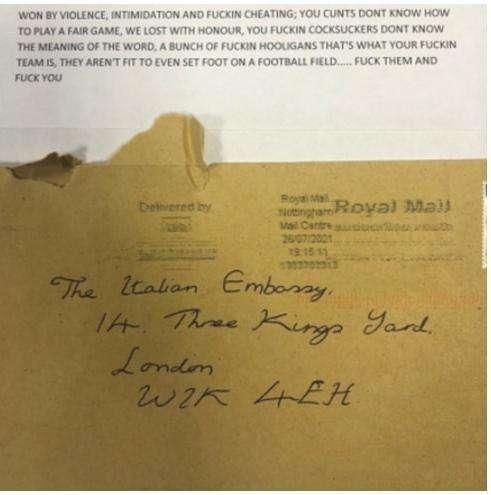 WON BY VIOLENCE, INTIMIDATION AND FUCKIN CHEATING; YOU CUNTS DONT KNOW HOW
TO PLAY A FAIR GAME, WE LOST WITH HONOUR, YOU FUCKIN COCKSUCKERS DONT KNOW
THE MEANING OF THE WORD, A BUNCH OF FUCKIN HOOLIGANS THAT'S WHAT YOUR FUCKIN
TEAM IS, THEY AREN'T FIT TO EVEN SET FOOT ON A FOOTBALL FIELD..... FUCK THEM AND
FUCK YOU
Delivered by
Royal Mail
Nottingham
Mail Centre
26/07/2021
19:15:11
Royal Mail
The Italian Embassy,
14. Three Kings Yard,
London
W1K 4EH